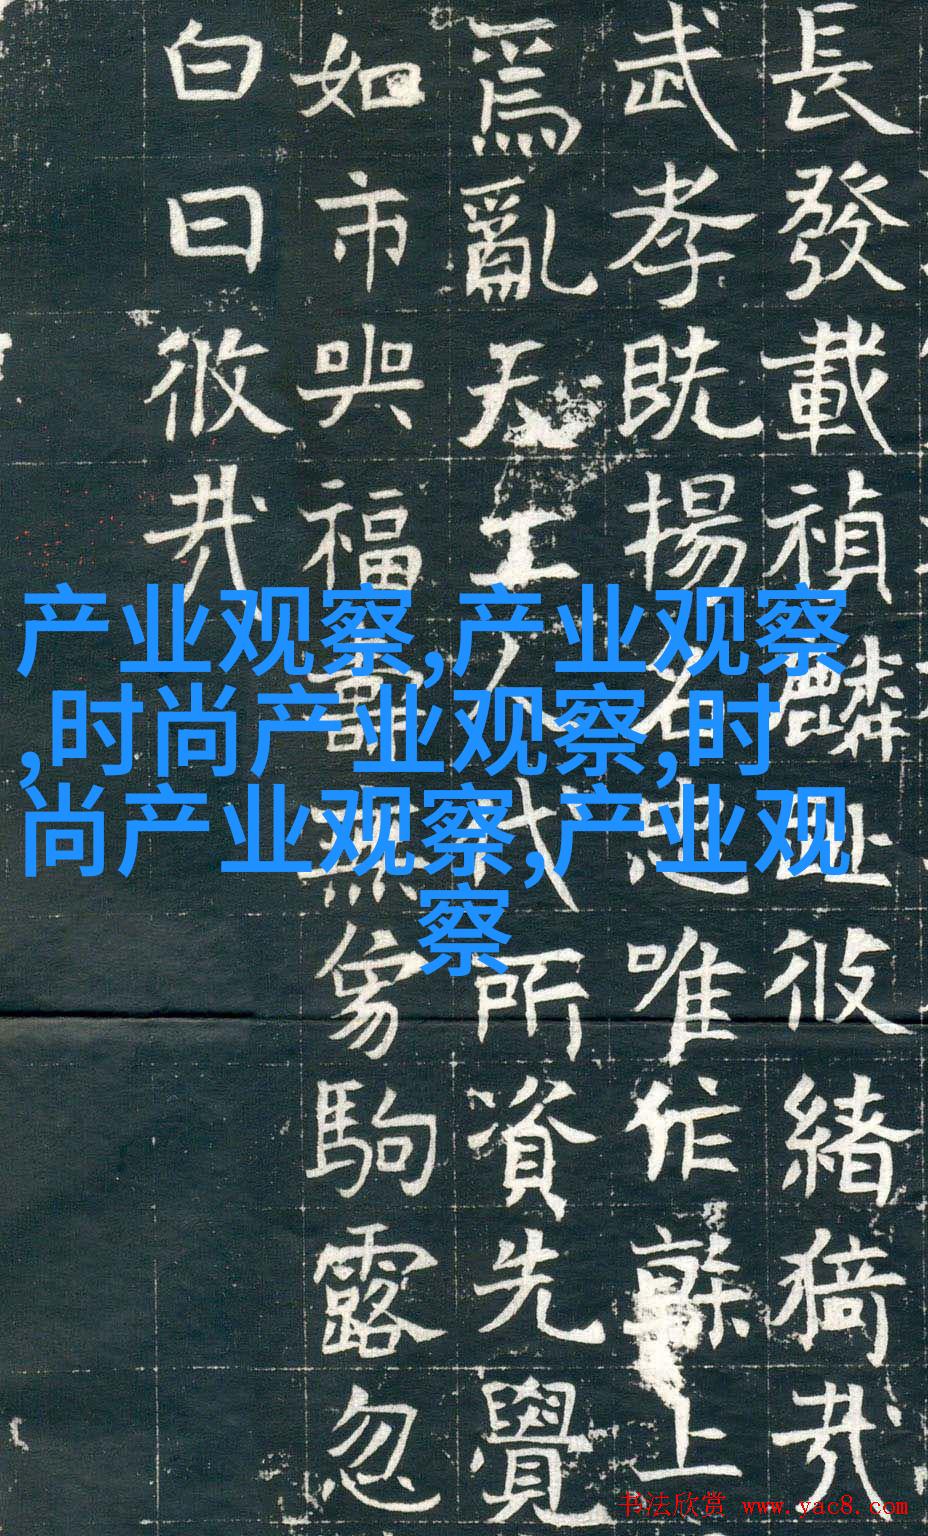 長發載禎麟趾彼緒猗哉
武孝既揚名忠唯作幹上
爲亂天工人代所資先覺
如市與福壽無象駒露忽
白日彼哉
产业观察,产业观察
,时尚产业观察,时
尚产业观察,产业观
察
书法欣赏 www.yac8.com